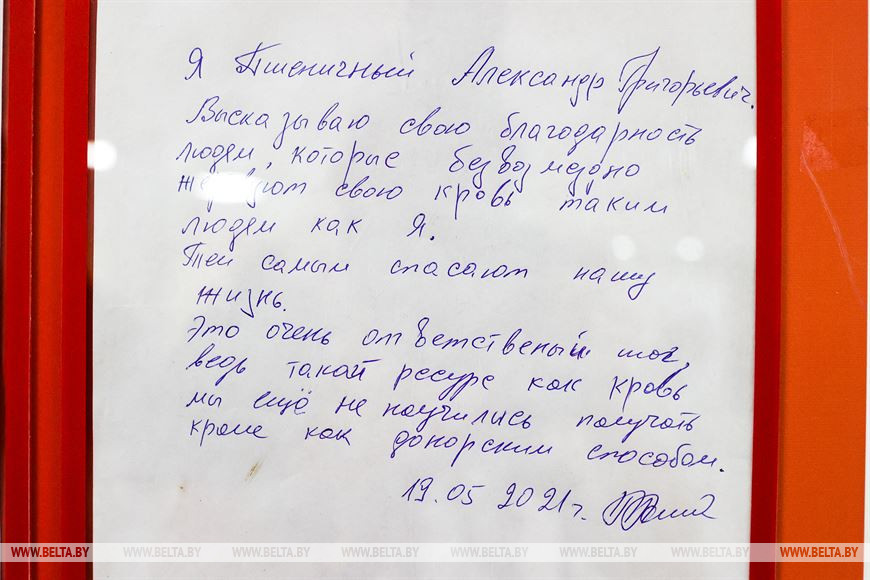 Я Пшеничный Александр Григорьевич.
Высказываю свою благодарность
людям, которые безвозмездно
жертвуют свою кровь таким
людям как Я.
Тем самым спасают нашу
жизнь.
Это очень ответственый шаг,
ведь такой ресурс как кровь
мы ещё не научились получать
кроме как донорским способом.
19.05 2021г.
WWW.BELTA.BY WWW.BELTA.BY WWW.BELTA.BY WWW.BELTA.BY WWW.BELTA.BY WWW.BELTA.BY WWW.BELTA.BY WWW.BELTA.BY